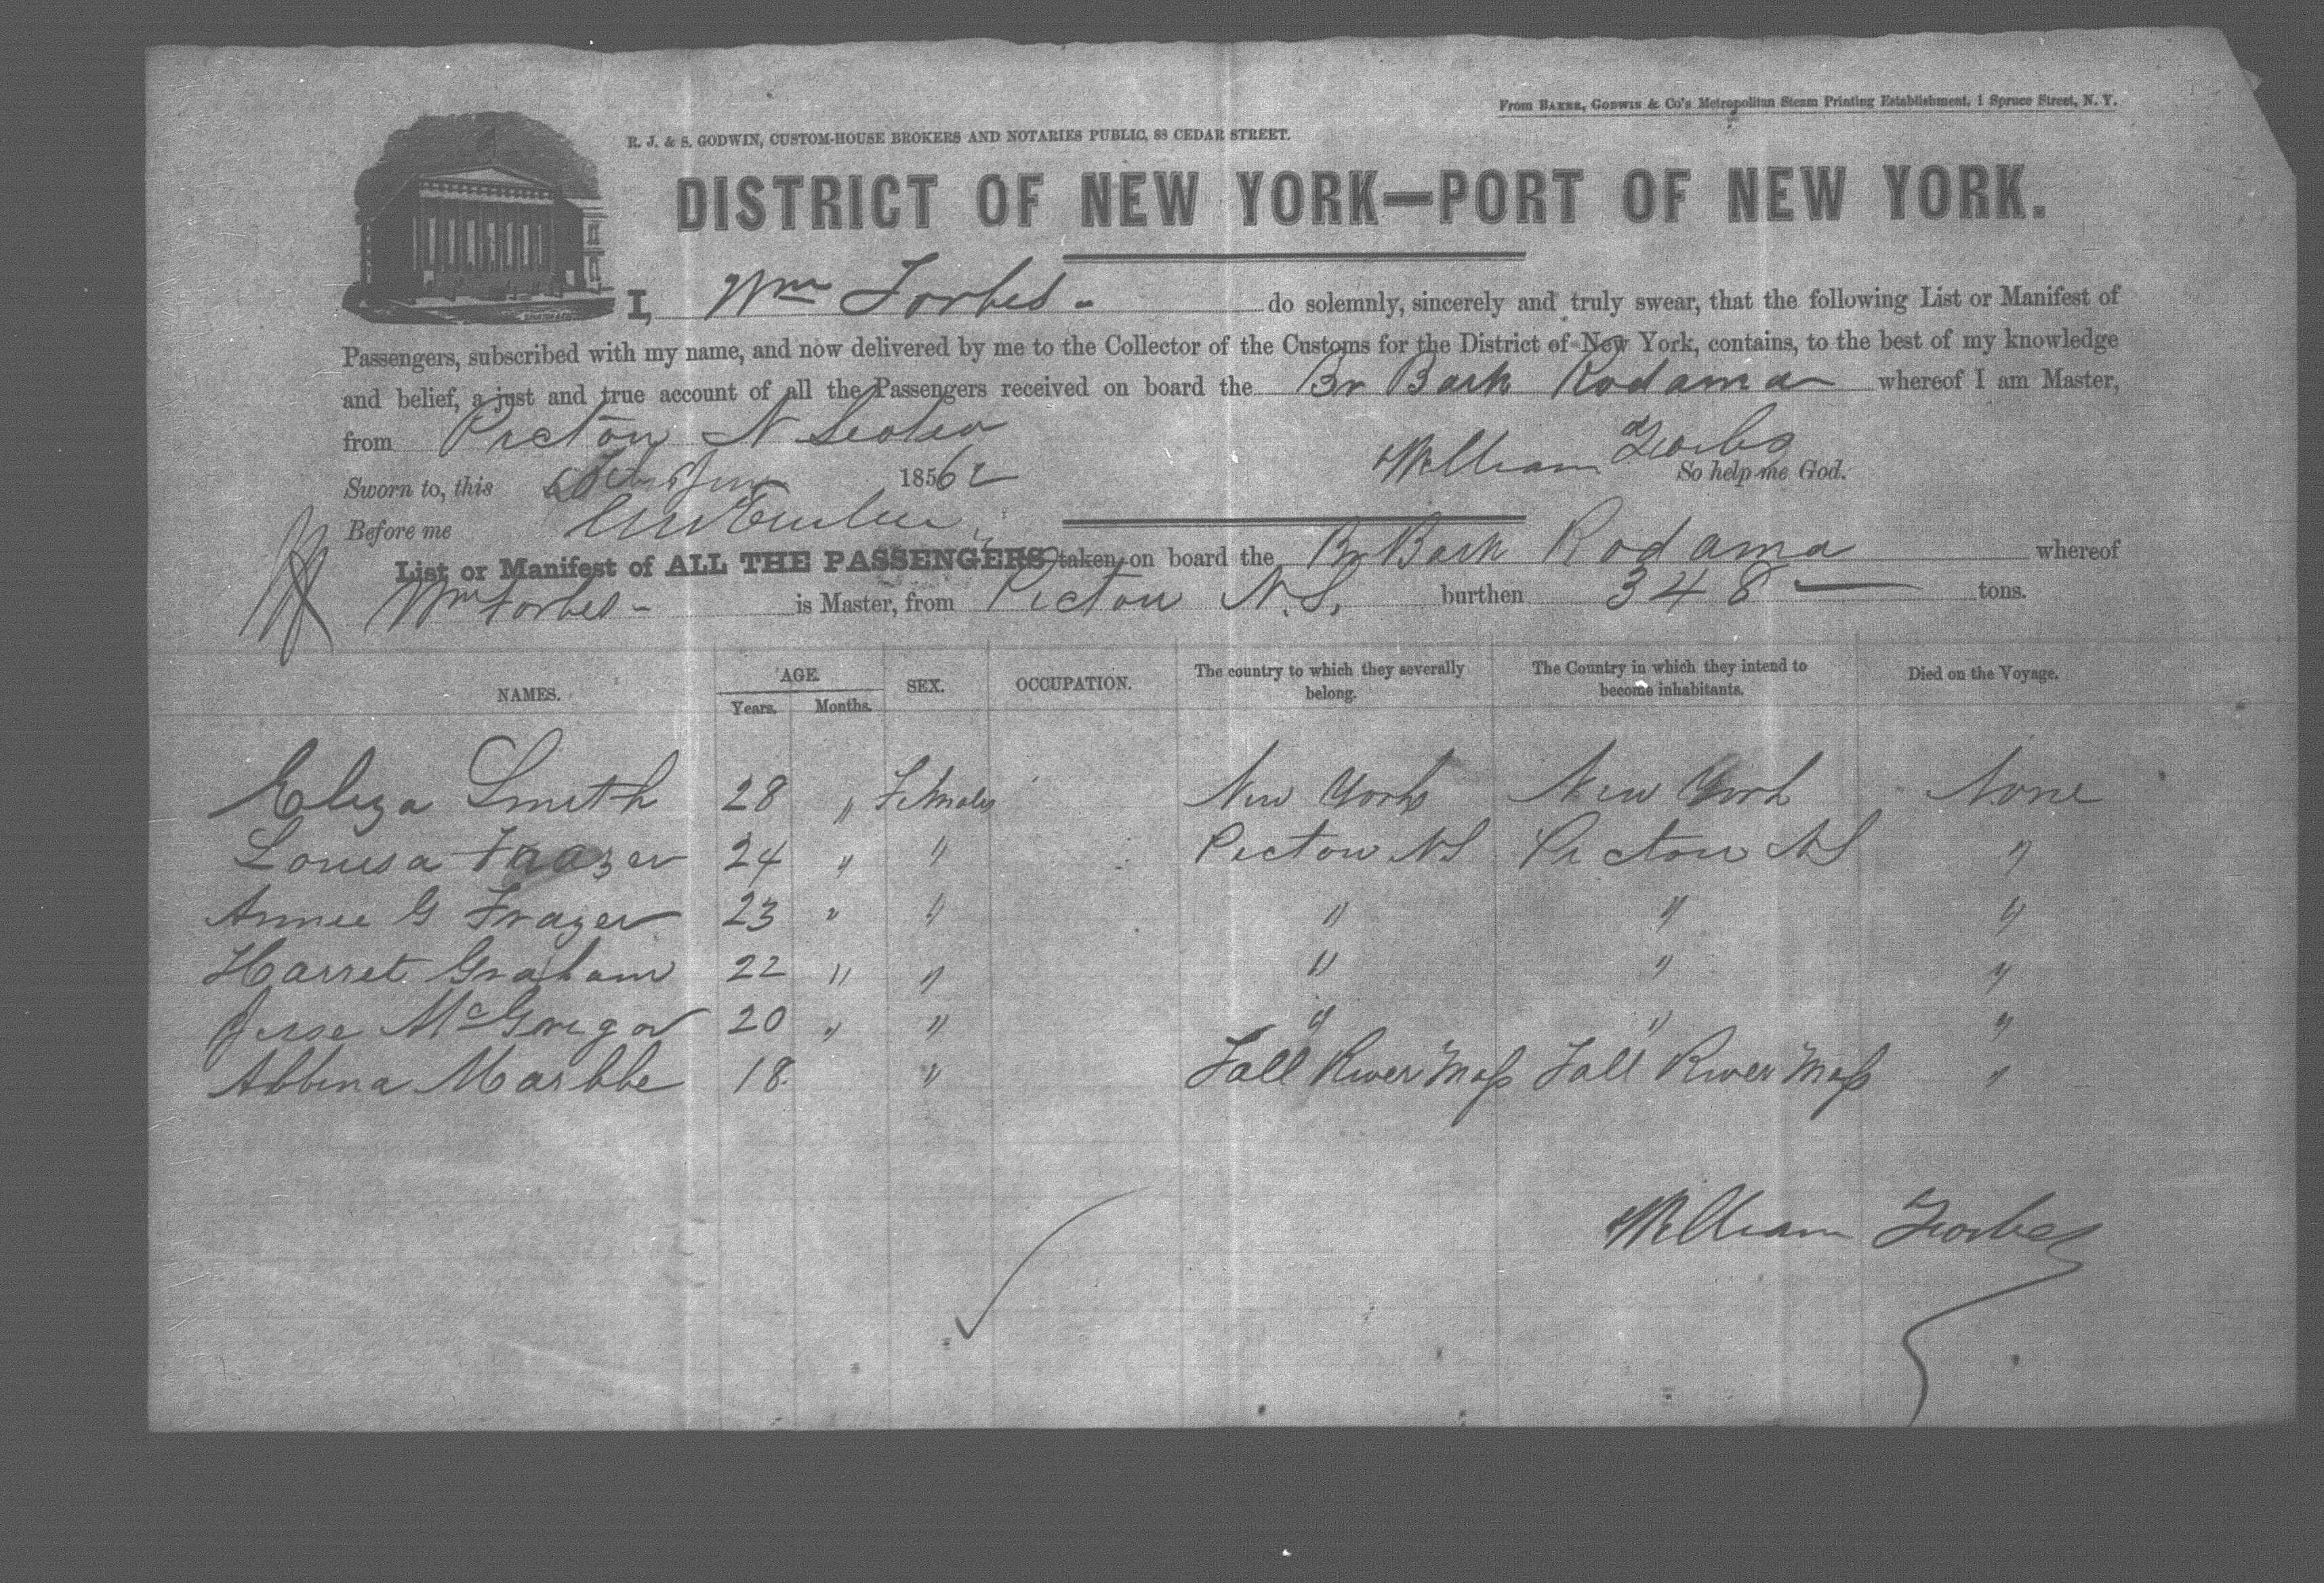 From BAKER, GODWIN & Co's Metropolitan Steam Printing Establishment, 1 Spruce Street, N. Y.
R. J. & S. GODWIN, CUSTOM-HOUSE BROKERS AND NOTARIES PUBLIC, 88 CEDAR STREET.
DISTRICT OF NEW YORK—PORT OF NEW YORK.
I, Wm Forbes - do solemnly, sincerely and truly swear, that the following List or Manifest of
Passengers, subscribed with my name, and now delivered by me to the Collector of the Customs for the District of New York, contains, to the best of my knowledge
and belief, a just and true account of all the Passengers received on board the Br Bark Rodama whereof I am Master,
from Picton N Scotia
William Forbes
Sworn to, this 1862 So help me God.
Before me
List or Manifest of ALL THE PASSENGERS taken on board the Br Bark Rodama whereof
Wm Forbes - is Master, from Picton N.S. burthen 348 — tons.
NAMES. AGE. Years. Months. SEX. OCCUPATION. The country to which they severally belong. The Country in which they intend to become inhabitants. Died on the Voyage.
Eliza Smith 28 " Females New York New York None
Louisa Frazer 24 " " Picton NS Picton NS "
Annie G Frazer 23 " " " " "
Harret Graham 22 " " " " "
Jesse McGregor 20 " " " " "
Abbina Marbbe 18 " Fall River Mass Fall River Mass "
William Forbes